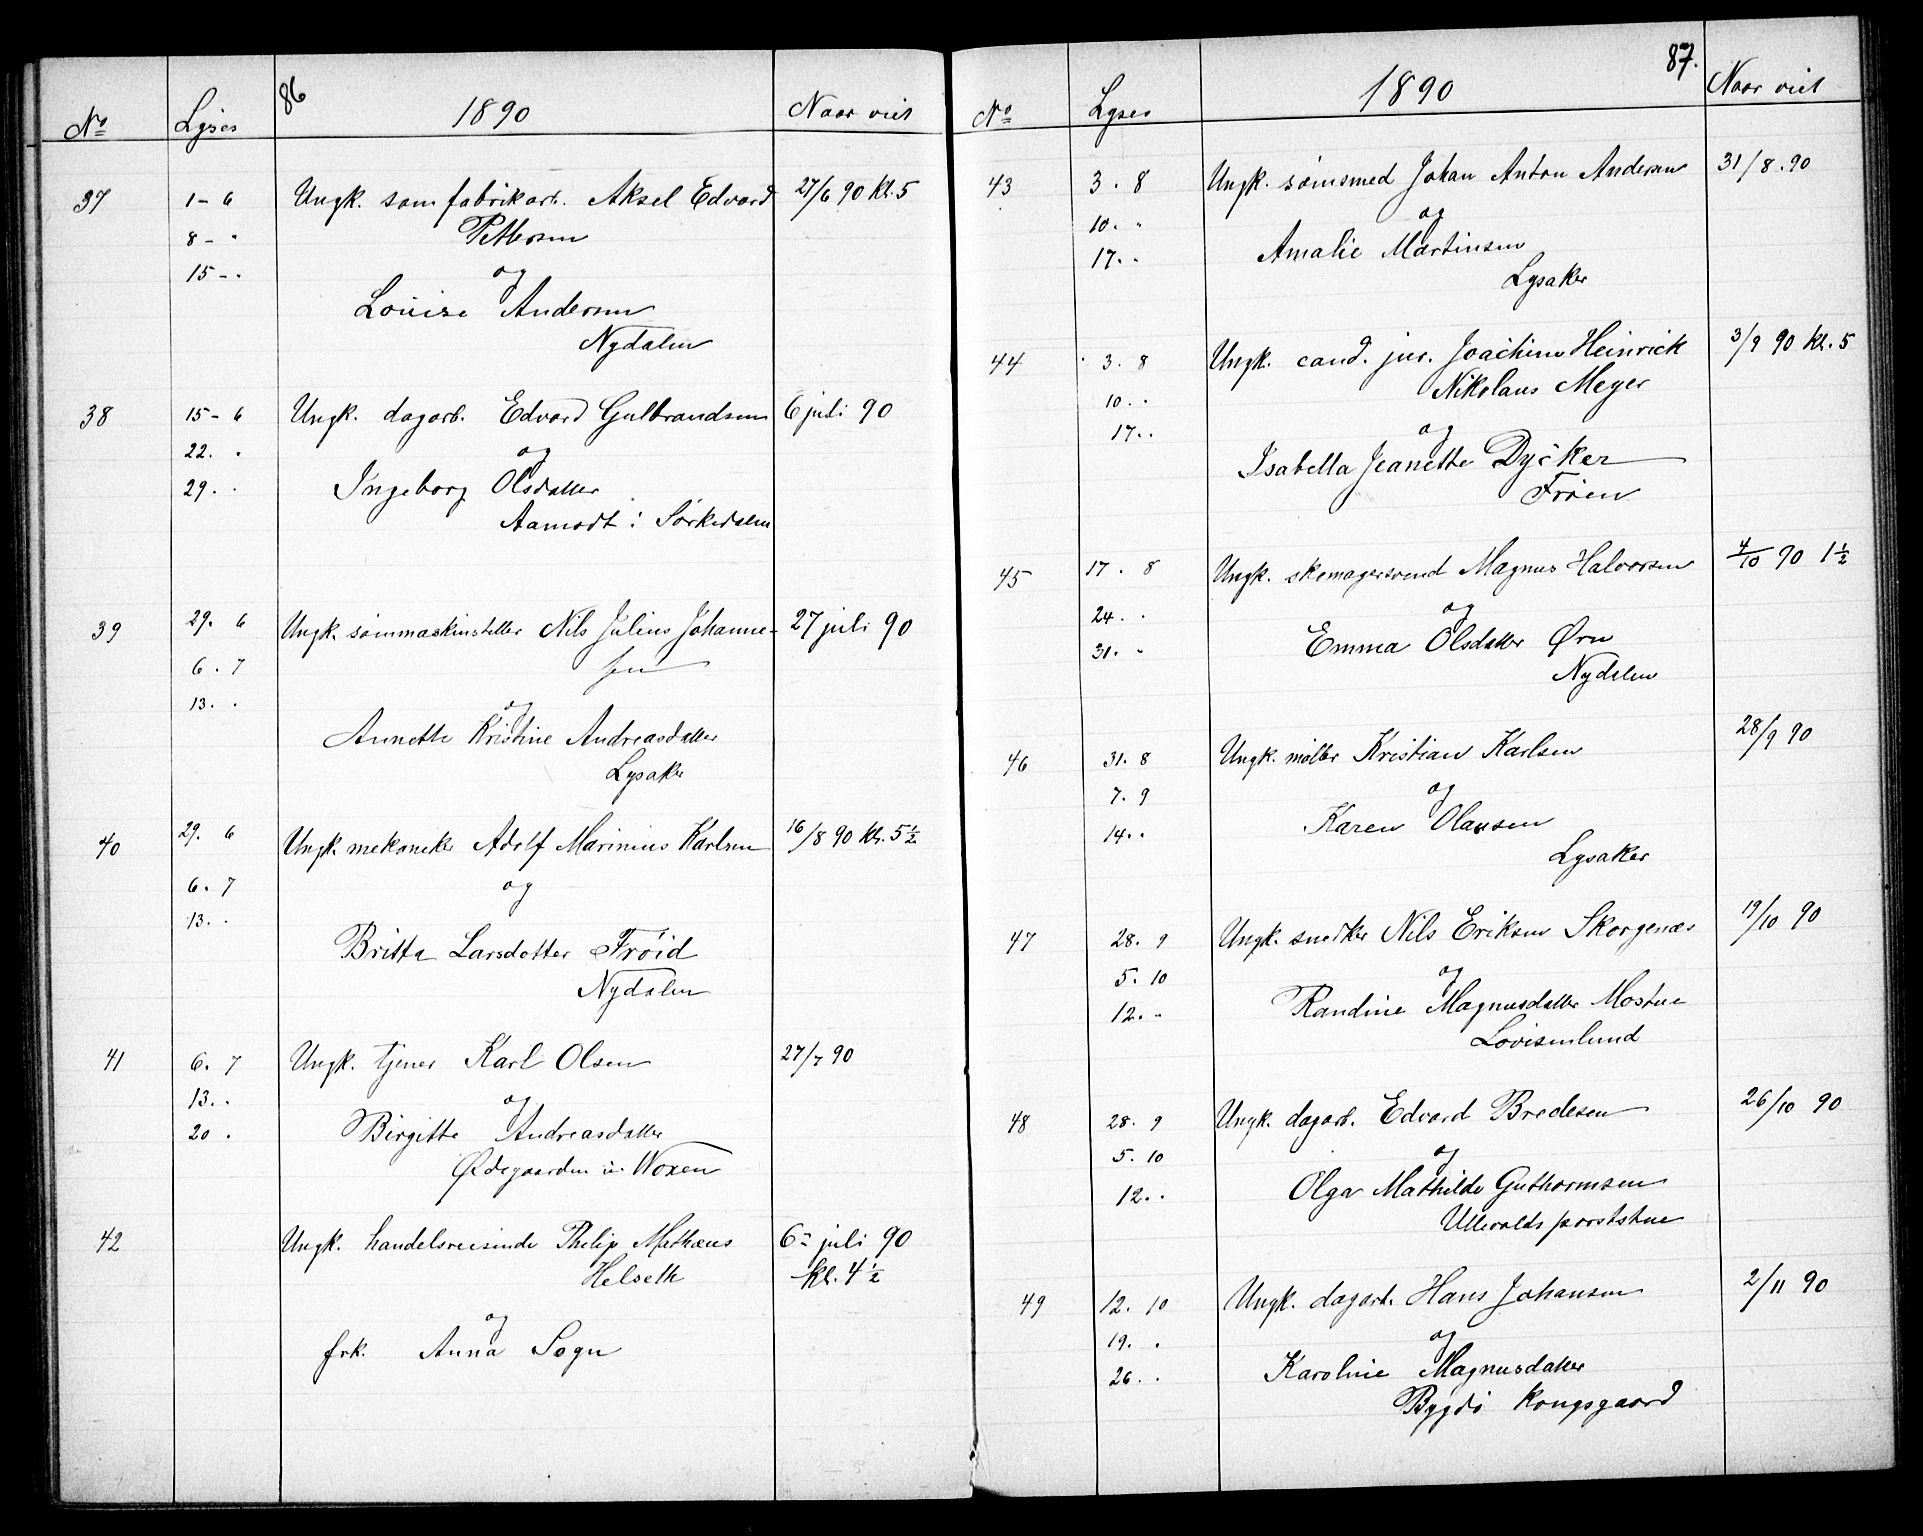 86
No Lyses 1890 Naar viet
37 1-6 Ungk. sømfabrikarb. Aksel Edvard 27/6 90 kl. 5
8 - " Pettersen
15 - " og
Louise Andersen
Nydalen
38 15-6 Ungk. dagarb. Edvard Gulbrandsen 6 juli 90
22. " og
29. " Ingeborg Olsdatter
Aamodt i Sørkedalen
39 29. 6 Ungk. sømmaskinstiller Nils Julius Johanne- 27 juli 90
6. 7 sen
13. " og
Annette Kristine Andreasdatter
Lysaker
40 29. 6 Ungk. mekaniker Adolf Marinius Karlsen 16/8 90 kl. 5 1/2
6. 7 og
13. "
Britta Larsdotter Fröid
Nydalen
41 6. 7 Ungk. tjener Karl Olsen 27/7 90
13. " og
20 " Birgitte Andreasdatter
Ødegaarden u. Woxen
42 Ungk. handelsreisende Philip Mathæus 6= juli 90
Helseth kl. 4 1/2
og
frk. Anna Sogn
87.
No Lyses 1890 Naar viet
43 3. 8 Ungk. sømsmed Johan Anton Andersen 31/8. 90
10. " og
17. " Amalie Martinsen
Lysaker
44 3. 8 Ungk. cand. jur. Joachim Heinrick 3/9 90 kl. 5
10. " Nikolaus Meyer
17. " og
Isabella Jeanette Dycker
Frøen
45 17. 8 Ungk. skomagersvend Magnus Halvorsen 4/10 90 1 1/2
24. " og
31. " Emma Olsdatter Ørn
Nydalen
46 31. 8 Ungk. møller Kristian Karlsen 28/9 90
7. 9 og
14. " Karen Olausen
Lysaker
47 28. 9 Ungk. snedker Nils Eriksen Skorgenæs 19/10 90
5. 10 og
12. " Randine Magnusdatter Mostue
Lovisenlund
48 28. 9 Ungk. dagarb. Edvard Bredesen 26/10 90
5. 10 og
12. " Olga Mathilde Guthormsen
Ullevolds portstue
49 12. 10 Ungk. dagarb. Hans Johansen 2/11 90
19. " og
26. " Karoline Magnusdatter
Bygdö Kongsgaard